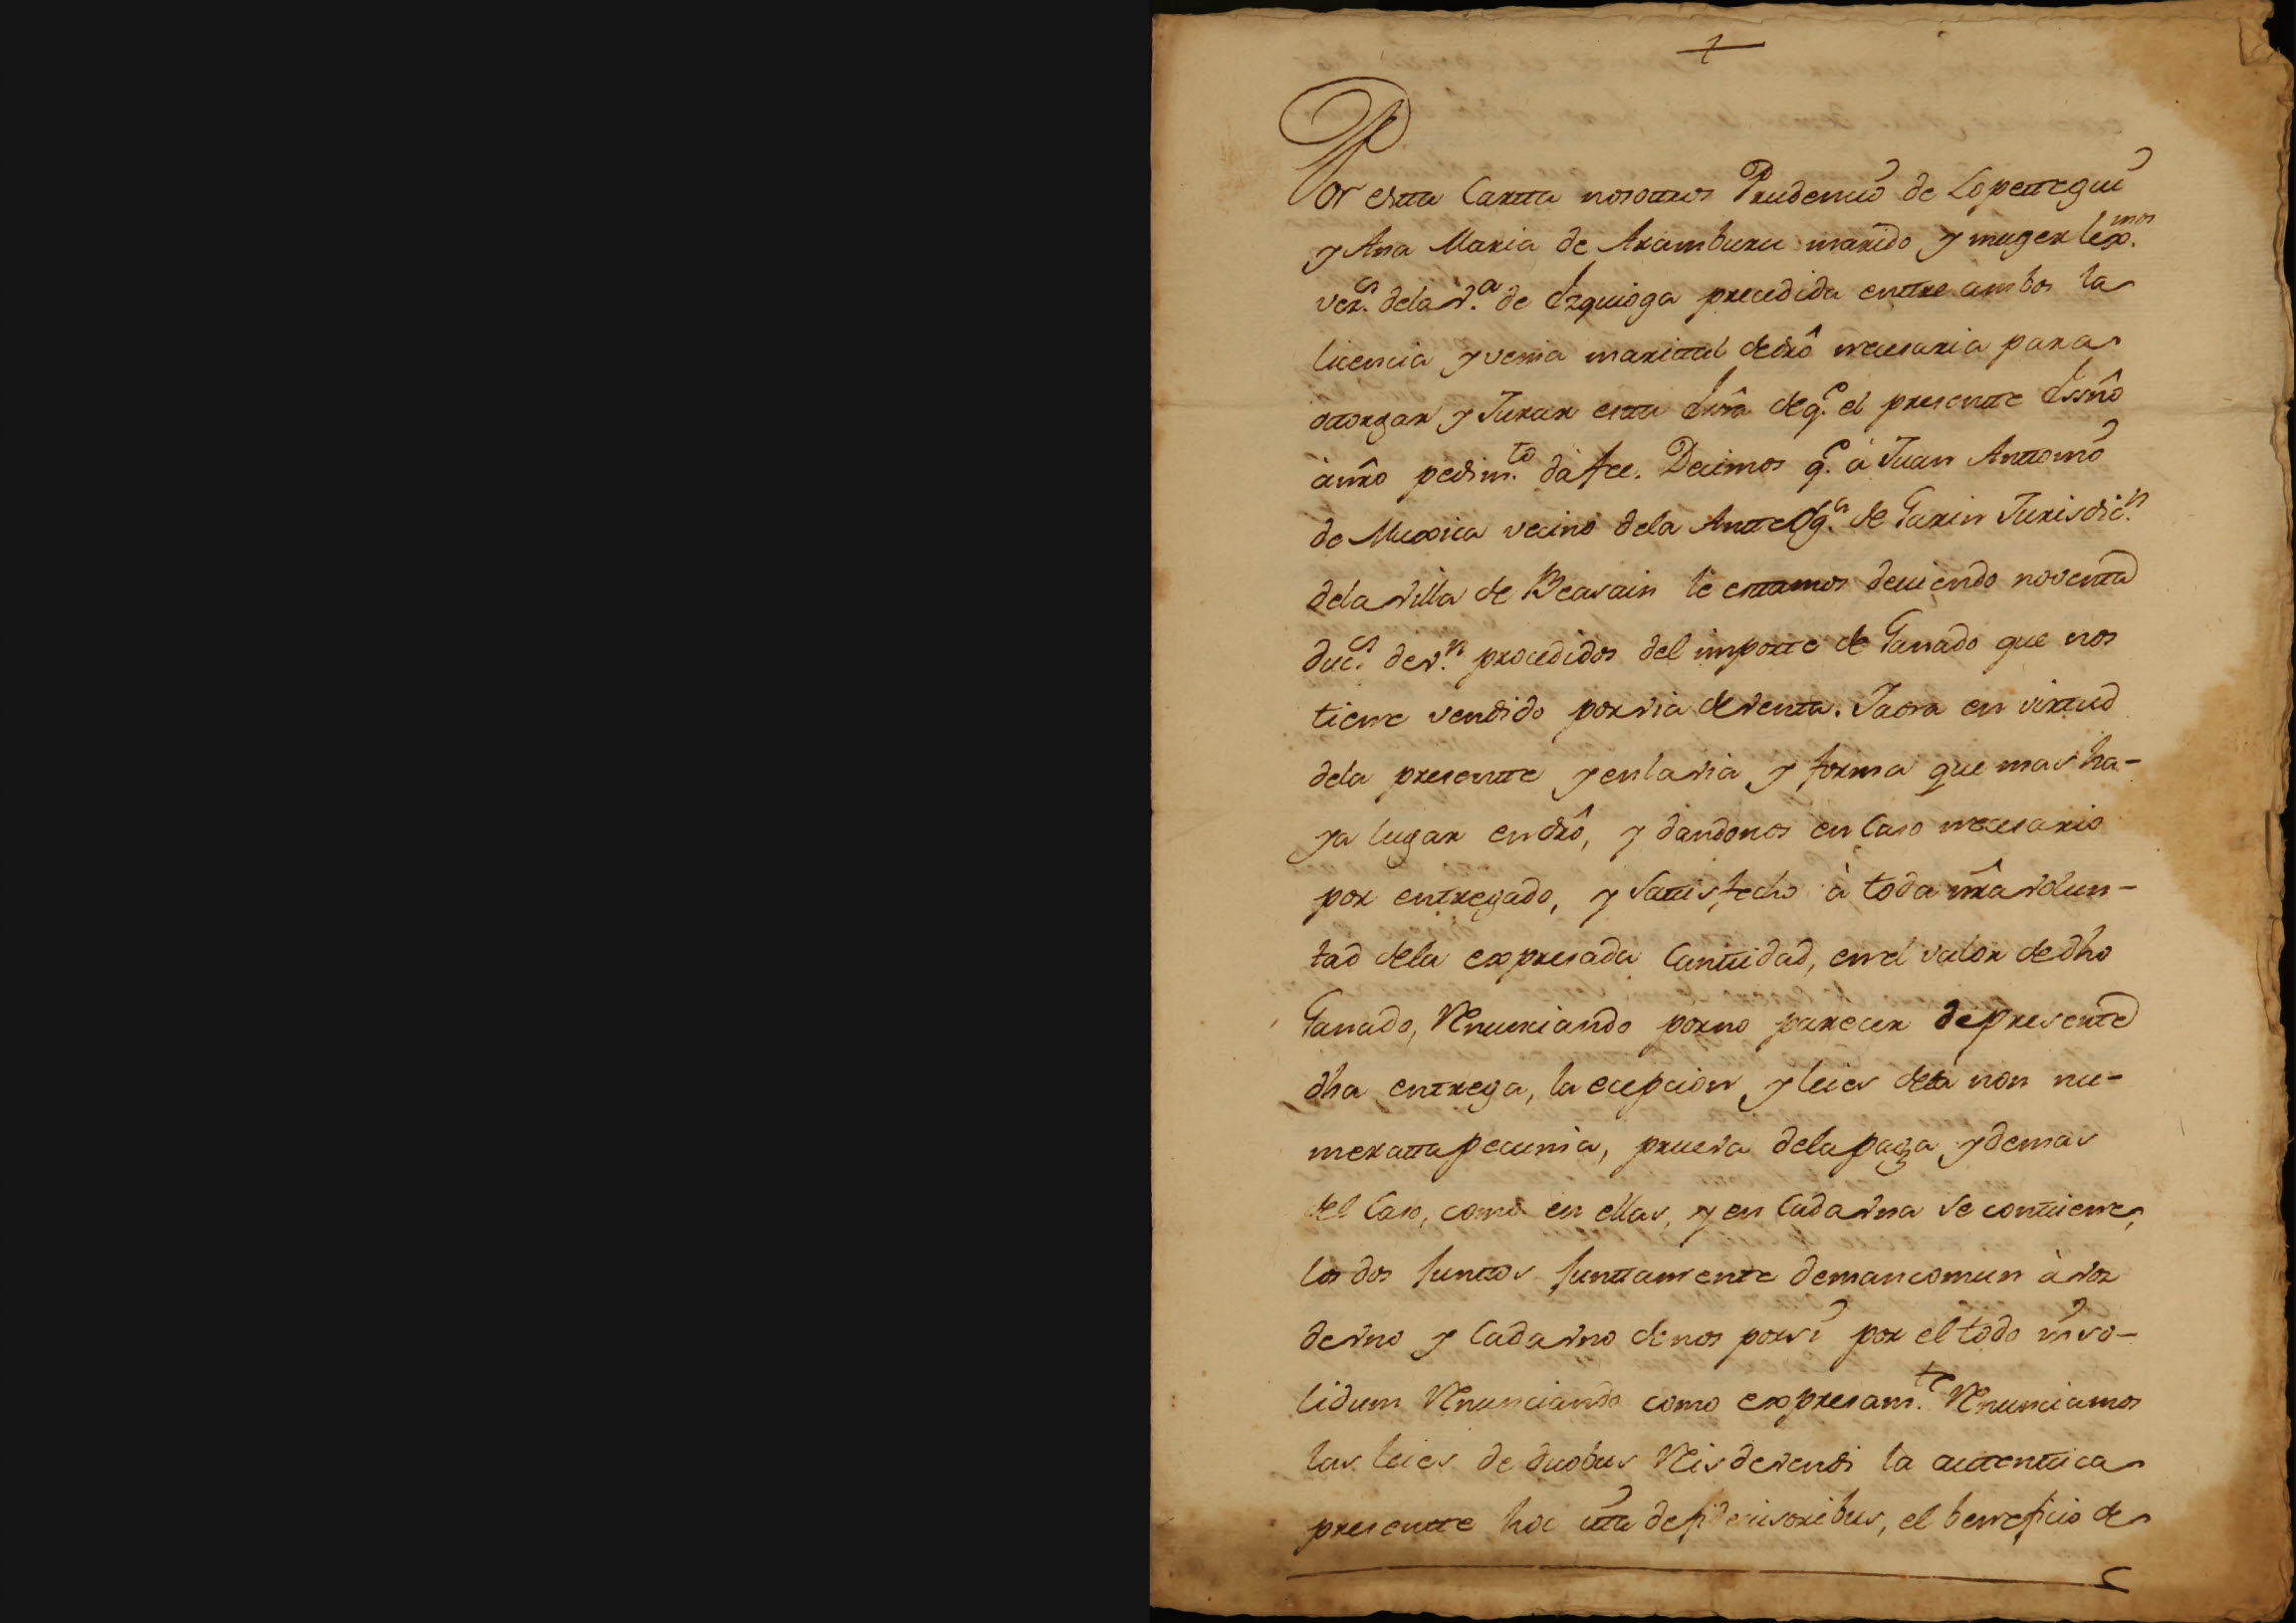 +
Por estta Cartta nosottros Prudencio de Lopettegui
y Ana Maria de Aramburu marido y muger lex.mos
vez.s dela v.a de Ezquioga precedida enttre ambos la
licencia y venia marittal de dro necesaria para
ottorgar y Jurar estta Escra de q.e el presentte Essno
à nro pedim.to dà fee. Decimos q.e à Juan Anttonio
de Muxica vecino dela Antteigg.a de Garin Jurisdic.n
dela villa de Beasain le esttamos deviendo noventta
duc.s de v.n procedidos del importte de Ganado que nos
tiene vendido por via de venta. Jaora en virttud
dela presentte y en la via y forma que mas ha-
ya lugar en dro, y dandonos en Caso necesario
por entregado, y Sattisfecho à toda nra volun-
tad dela expresada Canttidad, en el valor de dho
Ganado, Renunciando por no parecer de presentte
dha entrega, la ecepcion y leies dela non nu-
meratta pecunia, prueva dela paga y demas
del Caso, como en ellas, y en Cada vna se conttiene,
los dos Junttos Junttamente de mancomun à voz
de vno y Cada vno de nos por si por el todo inso-
lidum Renunciando como expresam.te Renunciamos
las leies de duobus Reis devendi la auttenttica
presentte hoc itta de fideiusoribus, el beneficio de